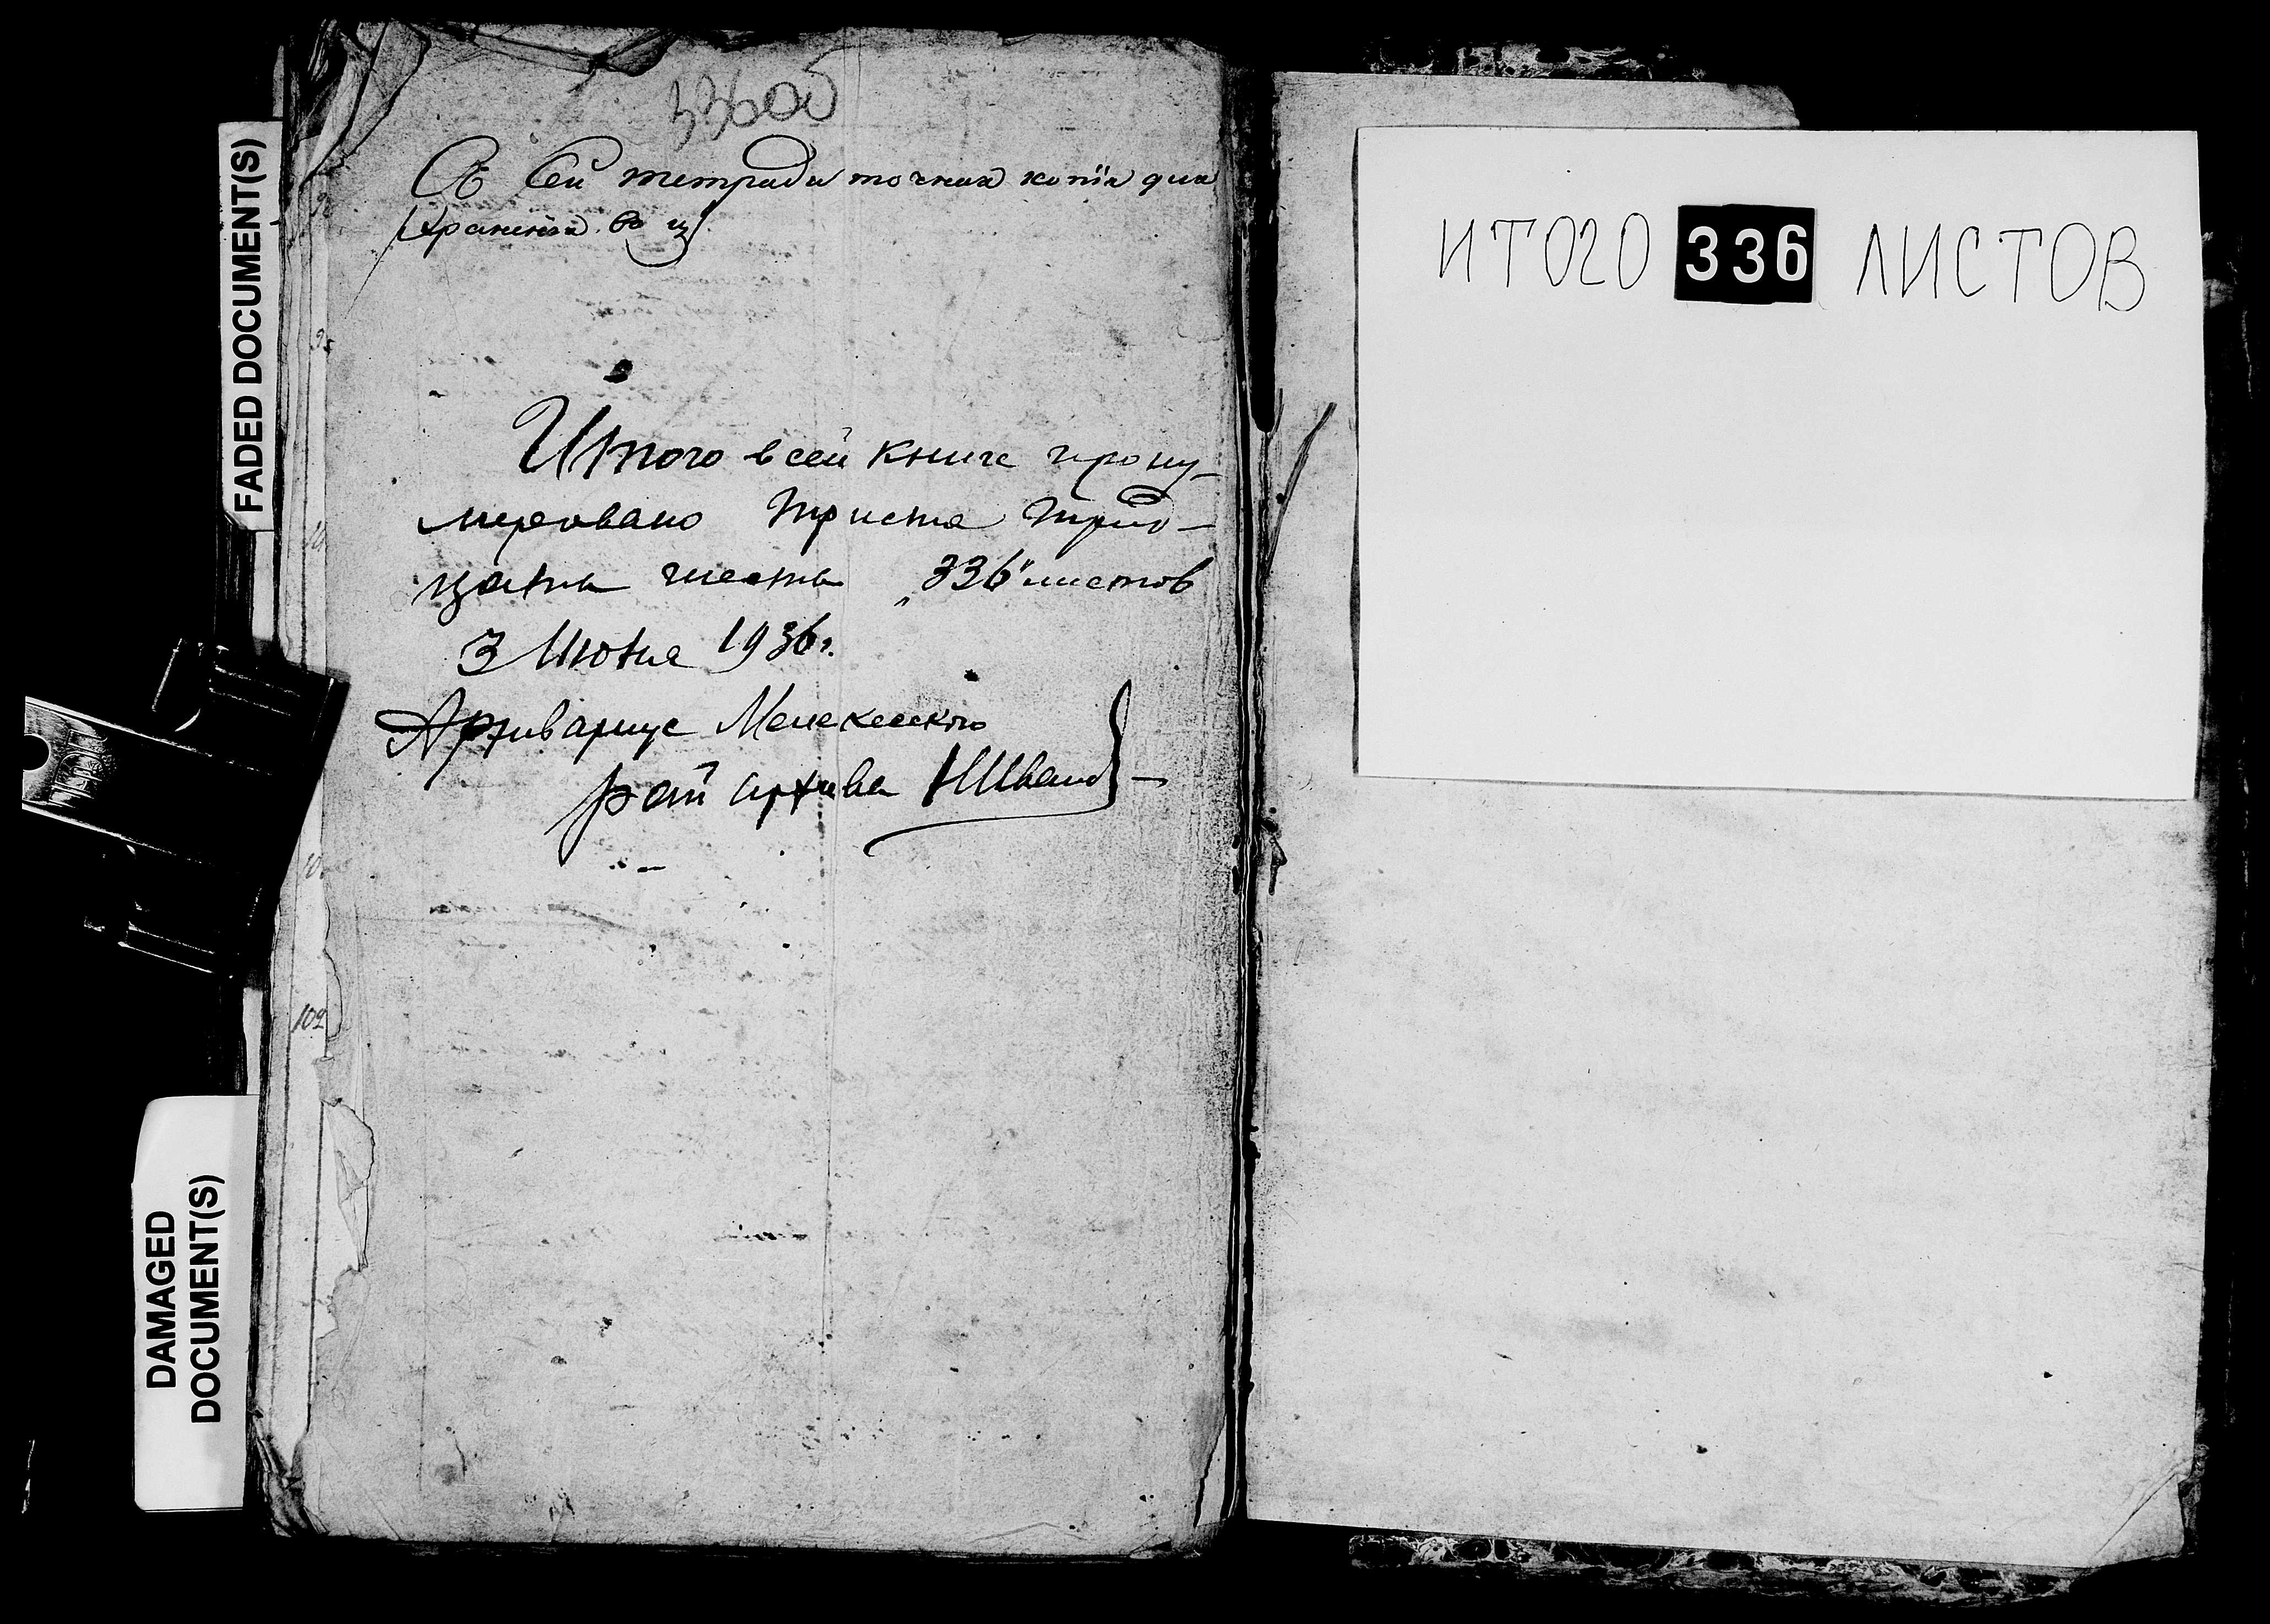 336об
Съ Сей тетради точная копія для
храненія въ ц
Итого в сей книге прону-
меровано триста трид-
цать шесть „336“ листов
3 Июня 1936 г.
Архивариус Мелекесского
рай архива
ИТОГО 336 ЛИСТОВ
FADED DOCUMENT(S)
DAMAGED
DOCUMENT(S)
102